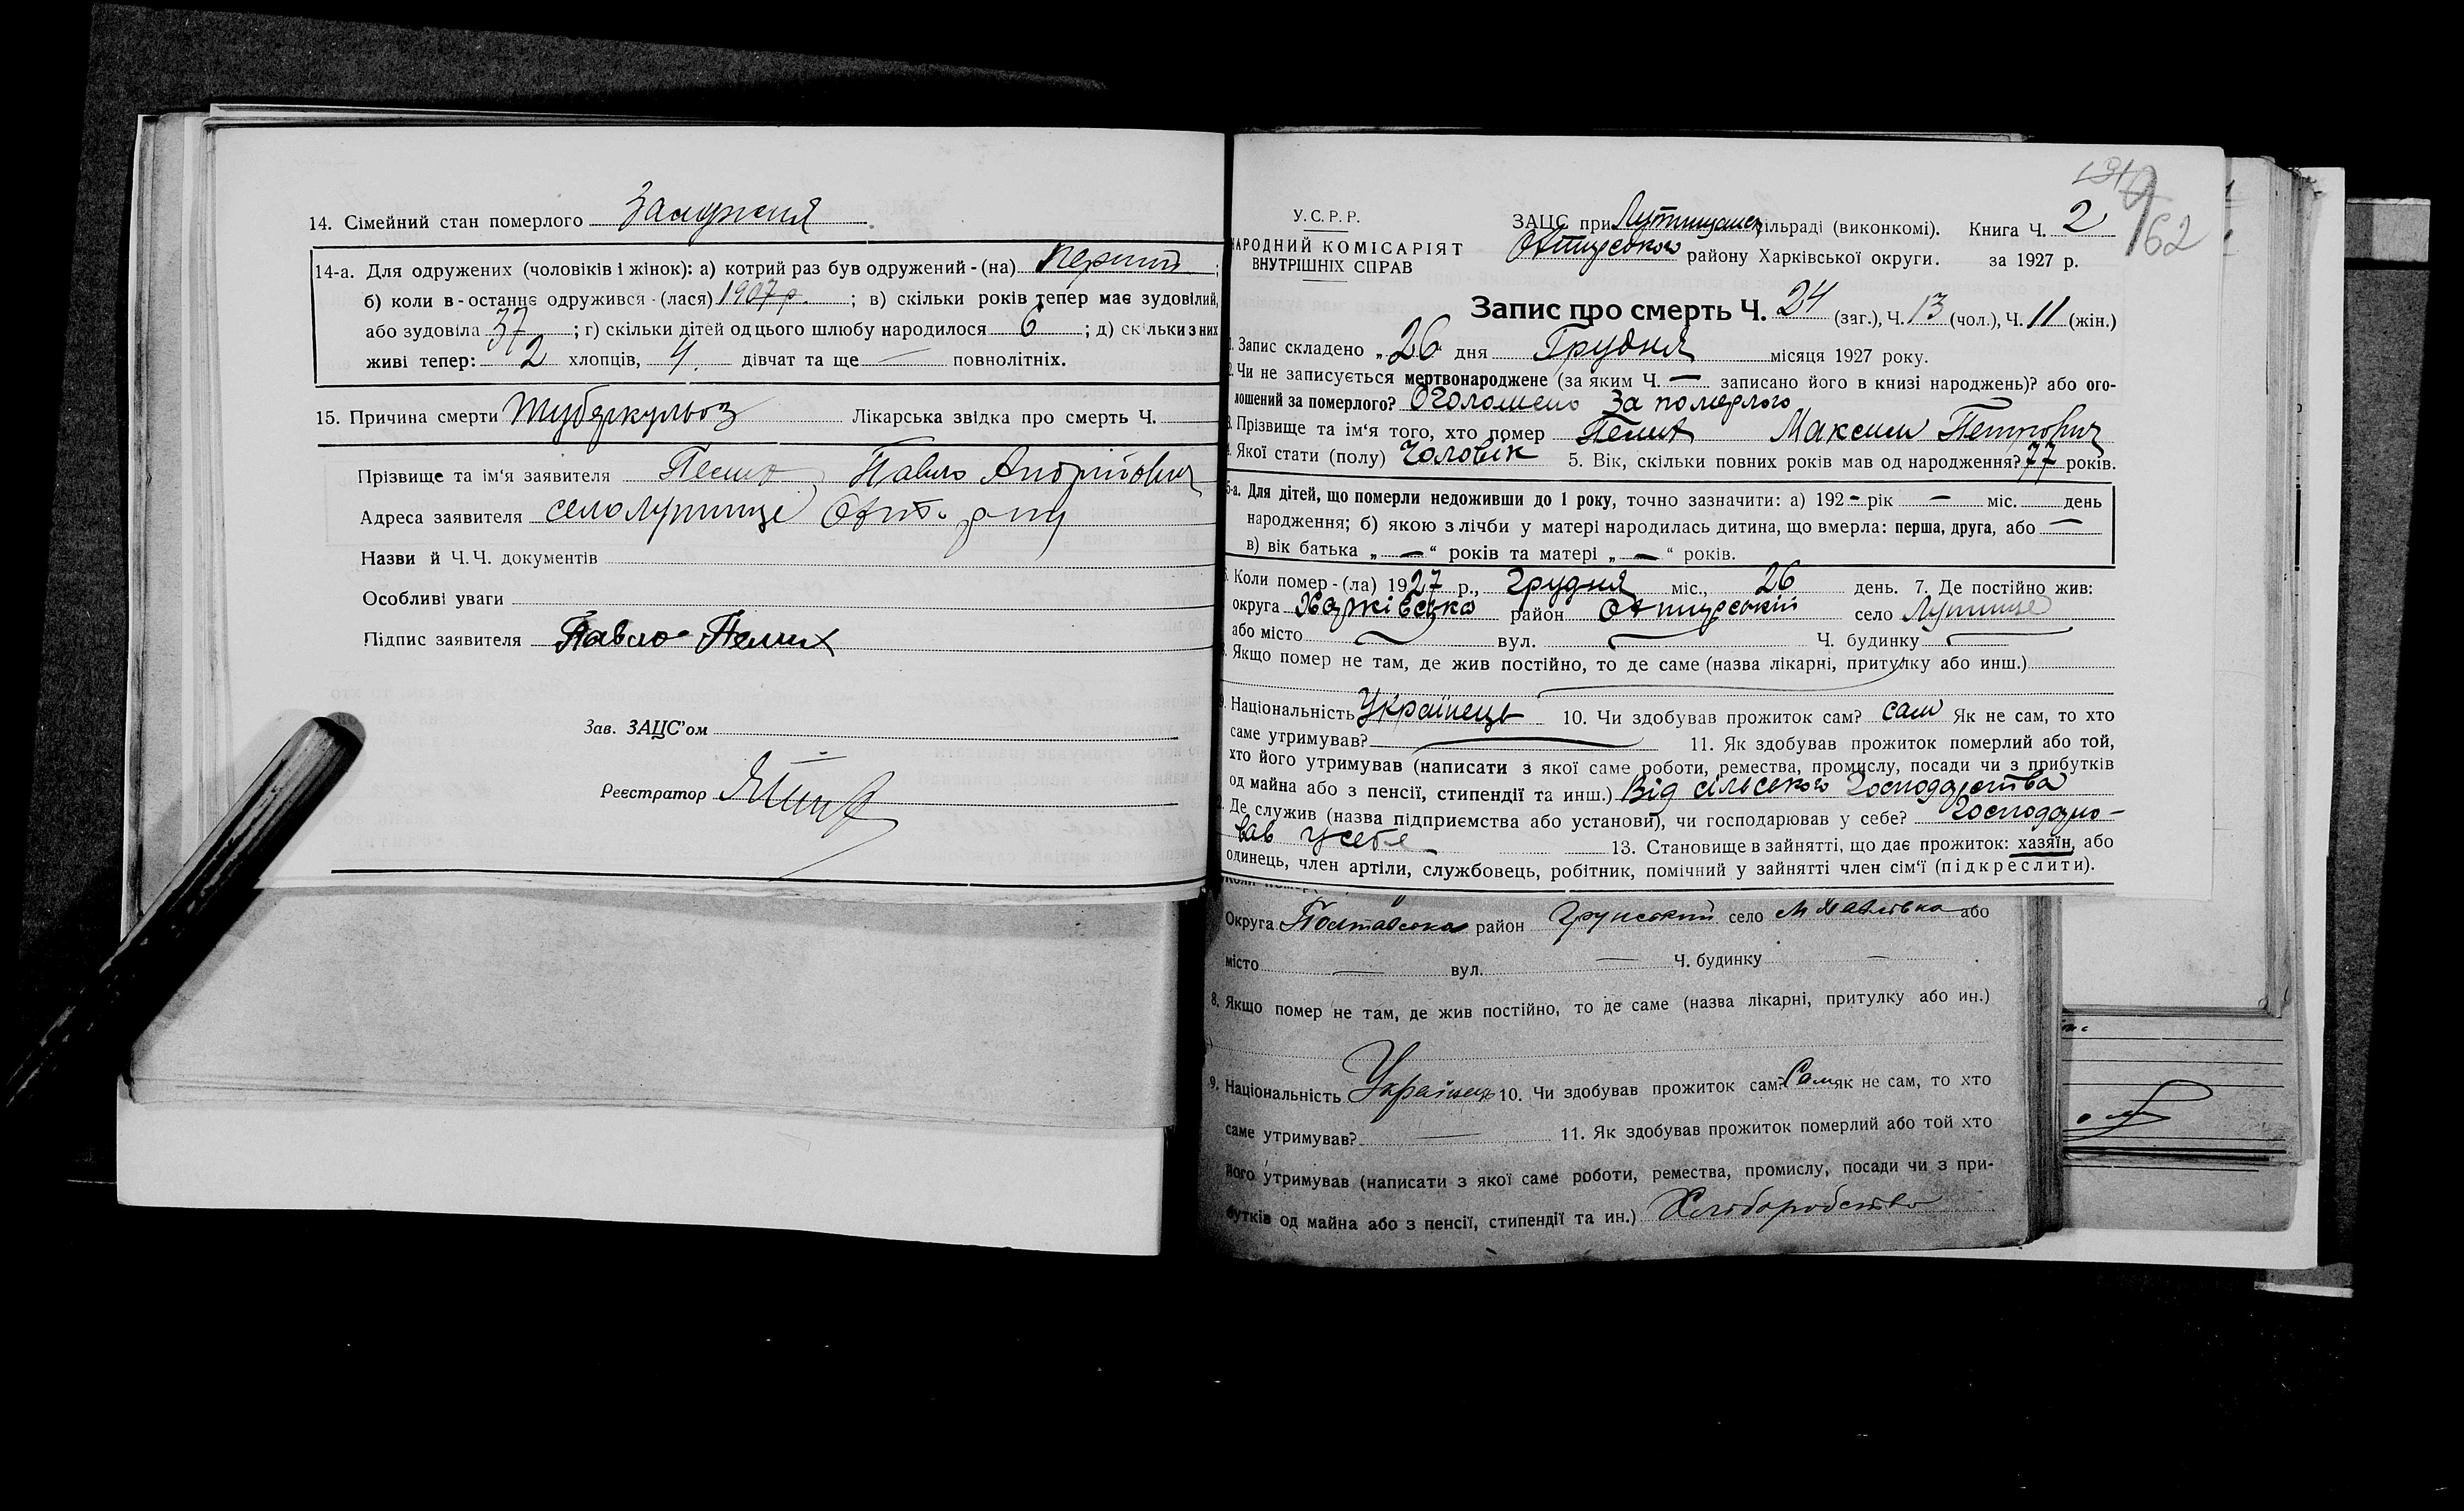 14. Сімейний стан померлого Замужня
14-а. Для одружених (чоловіків і жінок): а) котрий раз був одружений-(на) перший;
б) коли в-останнє одружився-(лася) 1907 р.; в) скільки років тепер має зудовілий,
або зудовіла 37; г) скільки дітей од цього шлюбу народилося 6; д) скільки з них
живі тепер: 2 хлопців, 4 дівчат та ще — повнолітніх.
15. Причина смерти Туберкульоз Лікарська звідка про смерть Ч.
Прізвище та ім'я заявника Павло Андрійович
Адреса заявителя село Лутище
Назви й Ч.Ч. документів
Особливі уваги
Підпис заявителя Павло
Зав. ЗАЦС'ом
Реєстратор
162
У.С.Р.Р.
НАРОДНИЙ КОМІСАРІЯТ
ВНУТРІШНІХ СПРАВ
ЗАЦС при сільраді (виконкомі). Книга Ч. 2
Охтирського району Харківської округи. за 1927 р.
Запис про смерть Ч. 24 (заг.), Ч. 13 (чол.), Ч. 11 (жін.)
1. Запис складено „26 дня Грудня місяця 1927 року.
2. Чи не записується мертвонароджене (за яким Ч. — записано його в книзі народжень)? або ого-
лошений за померлого? Оголошено За померлого
3. Прізвище та ім'я того, хто помер Максим Петрович
4. Якої стати (полу) Чоловік 5. Вік, скільки повних років мав од народження? 77 років.
5-а. Для дітей, що померли недоживши до 1 року, точно зазначити: а) 192 – рік – міс. день
народження; б) якою з лічби у матері народилась дитина, що вмерла: перша, друга, або —
в) вік батька „ — “ років та матері „ — “ років.
6. Коли помер-(ла) 1927 р., Грудня міс., 26 день. 7. Де постійно жив:
округа Харківська район Охтирський село Лутище
або місто вул. Ч. будинку
8. Якщо помер не там, де жив постійно, то де саме (назва лікарні, притулку або инш.)
9. Національність Українець 10. Чи здобував прожиток сам? сам Як не сам, то хто
саме утримував? 11. Як здобував прожиток померлий або той,
хто його утримував (написати з якої саме роботи, ремества, промислу, посади чи з прибутків
од майна або з пенсії, стипендії та инш.) Від сільського Господарства
Де служив (назва підприємства або установи), чи господарював у себе? Господарю-
вав у себе 13. Становище в зайнятті, що дає прожиток: хазяїн, або
одинець, член артіли, службовець, робітник, помічний у зайнятті член сім'ї (підкреслити).
Округа Полтавська район Грунський село Михайлівка або
місто — вул. — Ч. будинку —
8. Якщо помер не там, де жив постійно, то де саме (назва лікарні, притулку або ин.)
9. Національність Українець 10. Чи здобував прожиток сам? Сам як не сам, то хто
саме утримував? — 11. Як здобував прожиток померлий або той хто
його утримував (написати з якої саме роботи, ремества, промислу, посади чи з при-
бутків од майна або з пенсії, стипендії та ин.) Хліборобство